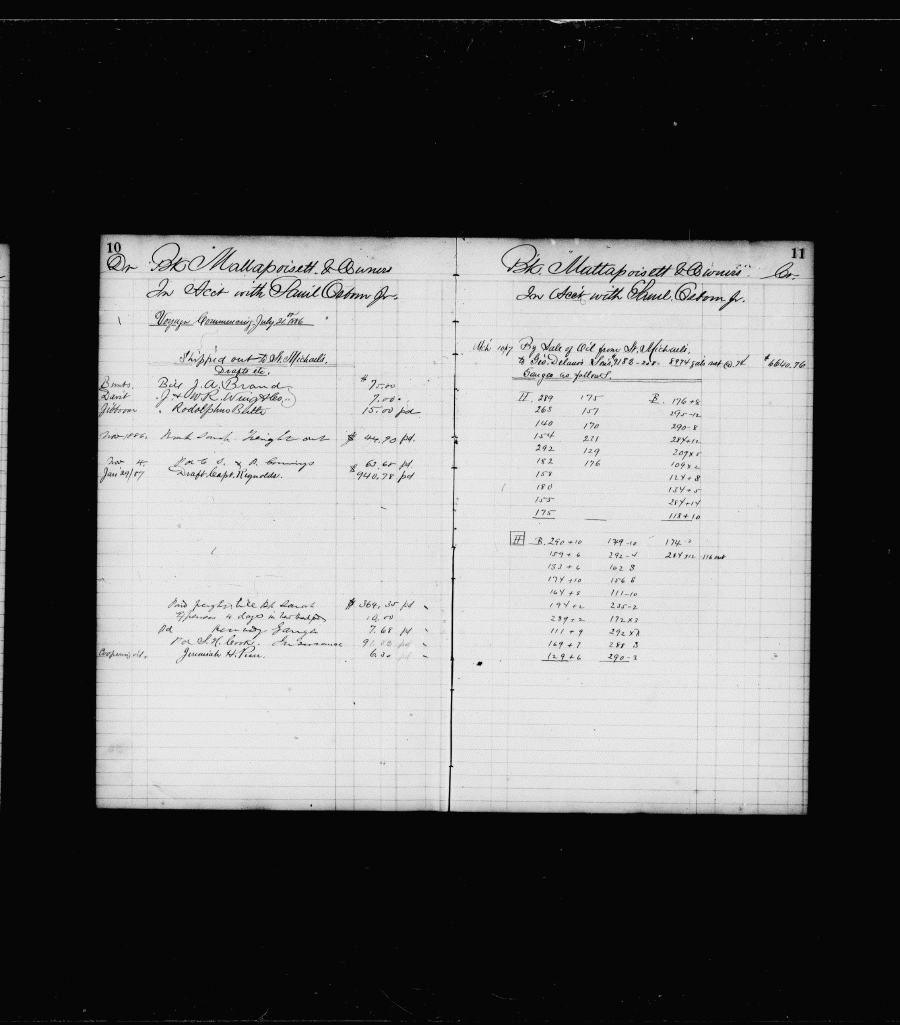 10
Dr Bk Mattapoisett & Owners
In Acct with Saml Osborn Jr.
Voyage Commencing July 21st 1886
Shipped out to St. Michaels.
Drafts etc.
Bombs. Bill J. A. Brand $ 75.00
Davit J & W. R. Wing & Co. 7.00
Jibboom " Rodolphus 15.00 pd
Nov 1886. Bark Sarah Freight out $ 44.90 pd.
Nov 4. 63.60 pd
Jan 29/87 Draft Capt. Reynolds. $ 940.78 pd
Paid freight Bk Sarah $ 364.35 pd
4 days in 10.00
Pd Gauger 7.68 pd
H. Cook. Insurance 91. pd
Coopering oil. Jeremiah H. 6.30 pd
11
Bk. "Mattapoisett & Owners" Cr.
In Acct with Saml. Osborn Jr.
By Sale of Oil from St. Michaels.
to Geo. Delano's Sons, 8974 gals net @ 74 $ 6640.76
Gauges as follows.
H 289 175 B. 176+8
265 157 295-12
140 170 290-8
154 271 284+12
292 129 209+8
182 176 109+2
158 124+8
180 134+5
155 284+14
175 113+10
H B. 290+10 179-10 174-
159+6 292-4 284+12 116 out
133+6 162 8
174+10 156 8
164+8 111-10
194+2 235-2
289+2 172+3
111+9 292+8
169+7 288 3
129+6 290-3